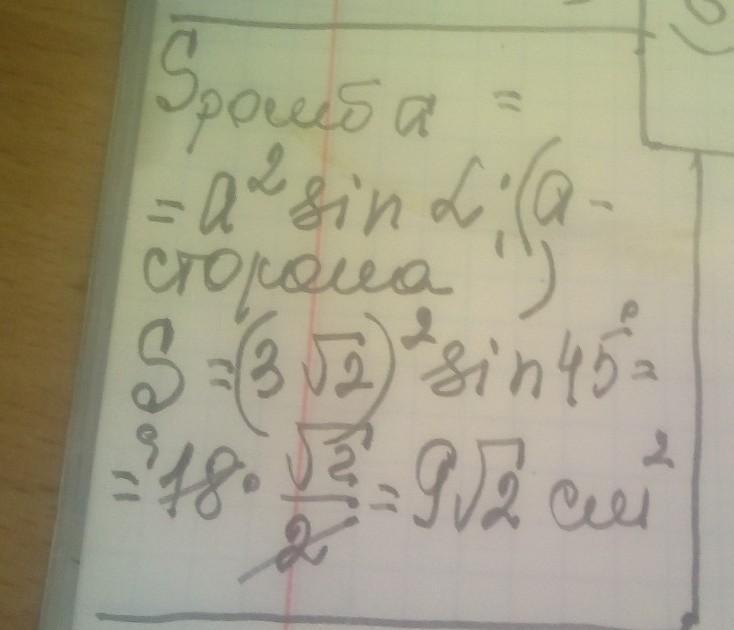 Sромба =
= a² sin α; (a -
сторона)
S = (3√2)² sin 45° =
= 18 · √2/2 = 9√2 см²